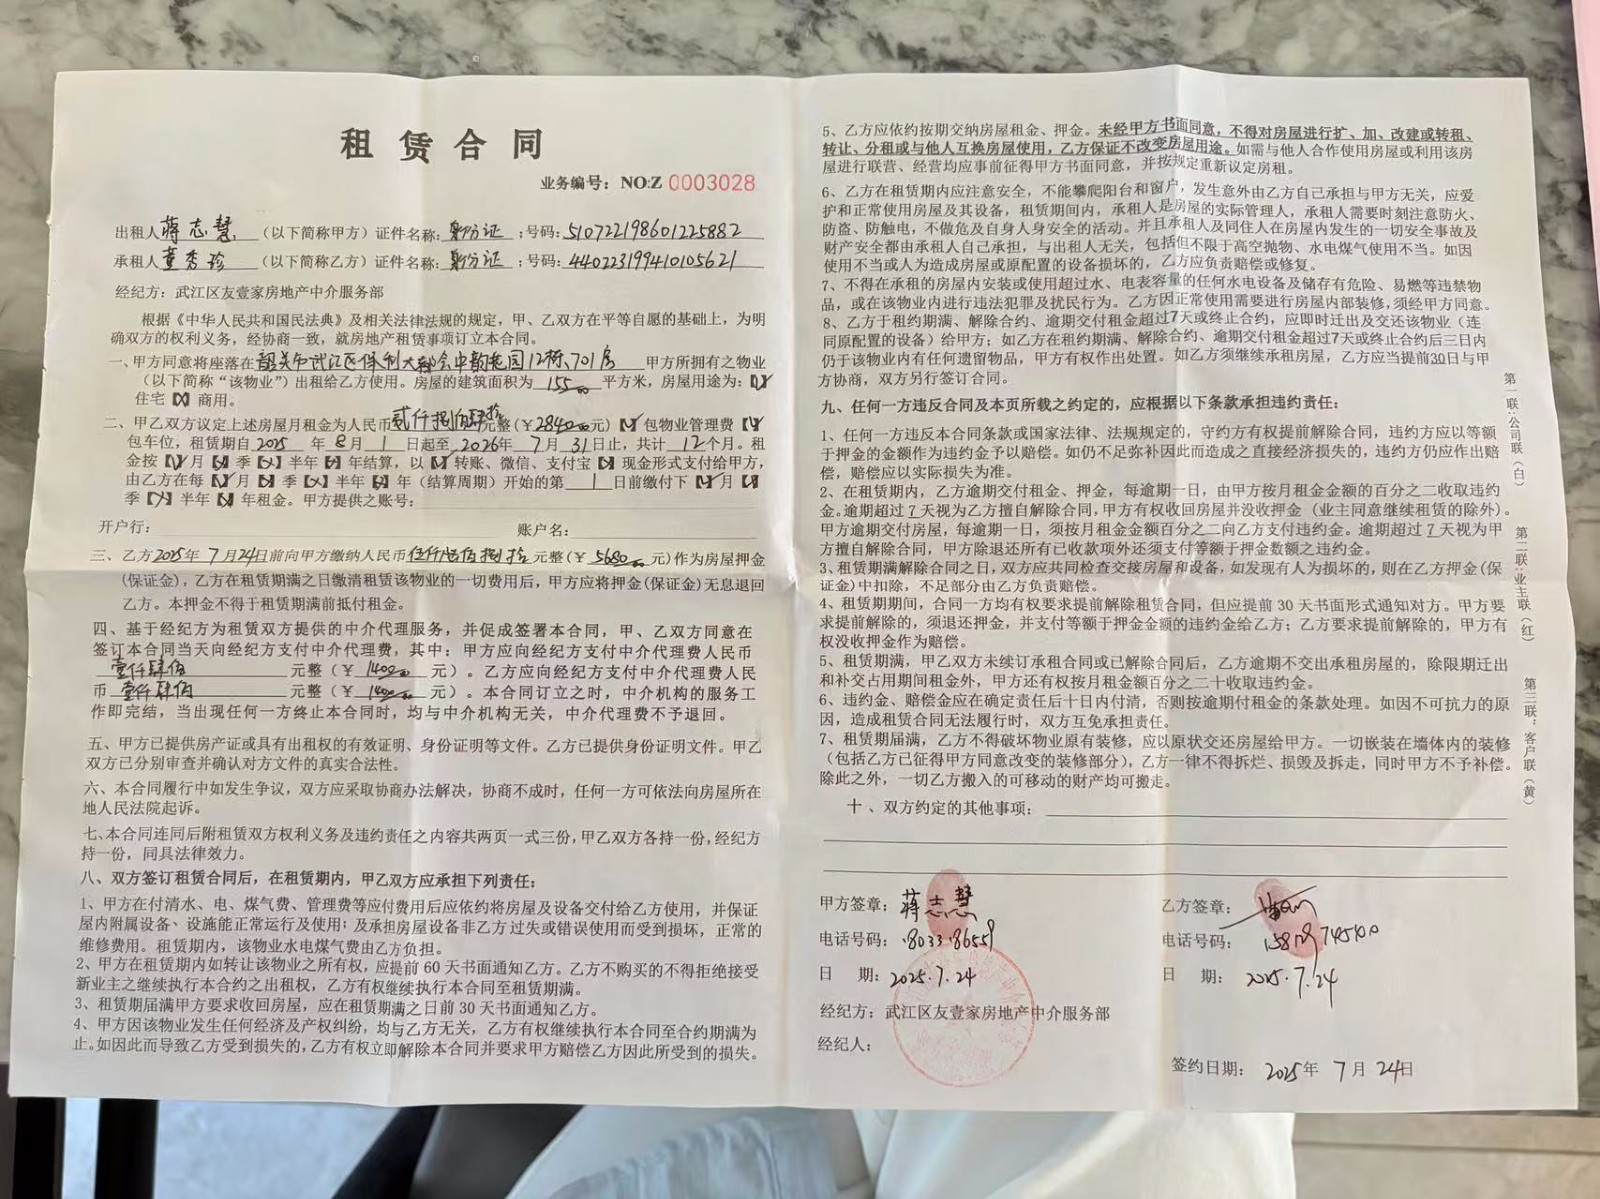 租赁合同
业务编号：NO:Z 0003028
出租人蒋志慧（以下简称甲方）证件名称：身份证；号码：510722198601225882
承租人童秀珍（以下简称乙方）证件名称：身份证；号码：440223199410105621
经纪方：武江区友壹家房地产中介服务部
根据《中华人民共和国民法典》及相关法律法规的规定，甲、乙双方在平等自愿的基础上，为明
确双方的权利义务，经协商一致，就房地产租赁事项订立本合同。
一、甲方同意将座落在韶关市武江区保利大都会中韵花园12栋、701房 甲方所拥有之物业
（以下简称“该物业”）出租给乙方使用。房屋的建筑面积为 155.00 平方米，房屋用途为：【√】
住宅【×】商用。
二、甲乙双方议定上述房屋月租金为人民币贰仟捌佰肆拾元整（￥2840.00元）【√】包物业管理费【√】
包车位，租赁期自 2025 年 8 月 1 日起至 2026 年 7 月 31 日止，共计 12 个月。租
金按【√】月【×】季【×】半年【×】年结算，以【√】转账、微信、支付宝【×】现金形式支付给甲方，
由乙方在每【√】月【×】季【×】半年【×】年（结算周期）开始的第 1 日前缴付下【√】月【×】
季【×】半年【×】年租金。甲方提供之账号：
开户行： 账户名：
三、乙方2025年7月24日前向甲方缴纳人民币伍仟陆佰捌拾元整（￥5680.00元）作为房屋押金
（保证金），乙方在租赁期满之日缴清租赁该物业的一切费用后，甲方应将押金（保证金）无息退回
乙方。本押金不得于租赁期满前抵付租金。
四、基于经纪方为租赁双方提供的中介代理服务，并促成签署本合同，甲、乙双方同意在
签订本合同当天向经纪方支付中介代理费，其中：甲方应向经纪方支付中介代理费人民币
壹仟肆佰 元整（￥1400.00元）。乙方应向经纪方支付中介代理费人民
币 壹仟肆佰 元整（￥1400.00元）。本合同订立之时，中介机构的服务工
作即完结，当出现任何一方终止本合同时，均与中介机构无关，中介代理费不予退回。
五、甲方已提供房产证或具有出租权的有效证明、身份证明等文件。乙方已提供身份证明文件。甲乙
双方已分别审查并确认对方文件的真实合法性。
六、本合同履行中如发生争议，双方应采取协商办法解决，协商不成时，任何一方可依法向房屋所在
地人民法院起诉。
七、本合同连同后附租赁双方权利义务及违约责任之内容共两页一式三份，甲乙双方各持一份，经纪方
持一份，同具法律效力。
八、双方签订租赁合同后，在租赁期内，甲乙双方应承担下列责任：
1、甲方在付清水、电、煤气费、管理费等应付费用后应依约将房屋及设备交付给乙方使用，并保证
屋内附属设备、设施能正常运行及使用；及承担房屋设备非乙方过失或错误使用而受到损坏，正常的
维修费用。租赁期内，该物业水电煤气费由乙方负担。
2、甲方在租赁期内如转让该物业之所有权，应提前60天书面通知乙方。乙方不购买的不得拒绝接受
新业主之继续执行本合约之出租权，乙方有权继续执行本合同至租赁期满。
3、租赁期届满甲方要求收回房屋，应在租赁期满之日前30天书面通知乙方。
4、甲方因该物业发生任何经济及产权纠纷，均与乙方无关，乙方有权继续执行本合同至合约期满为
止。如因此而导致乙方受到损失的，乙方有权立即解除本合同并要求甲方赔偿乙方因此所受到的损失。
5、乙方应依约按期交纳房屋租金、押金。未经甲方书面同意，不得对房屋进行扩、加、改建或转租、
转让、分租或与他人互换房屋使用，乙方保证不改变房屋用途。如需与他人合作使用房屋或利用该房
屋进行联营、经营均应事前征得甲方书面同意，并按规定重新议定房租。
6、乙方在租赁期内应注意安全，不能攀爬阳台和窗户，发生意外由乙方自己承担与甲方无关，应爱
护和正常使用房屋及其设备，租赁期间内，承租人是房屋的实际管理人，承租人需要时刻注意防火、
防盗、防触电，不做危及自身人身安全的活动。并且承租人及同住人在房屋内发生的一切安全事故及
财产安全都由承租人自己承担，与出租人无关，包括但不限于高空抛物、水电煤气使用不当。如因
使用不当或人为造成房屋或原配置的设备损坏的，乙方应负责赔偿或修复。
7、不得在承租的房屋内安装或使用超过水、电表容量的任何水电设备及储存有危险、易燃等违禁物
品，或在该物业内进行违法犯罪及扰民行为。乙方因正常使用需要进行房屋内部装修，须经甲方同意。
8、乙方于租约期满、解除合约、逾期交付租金超过7天或终止合约，应即时迁出及交还该物业（连
同原配置的设备）给甲方；如乙方在租约期满、解除合约、逾期交付租金超过7天或终止合约后三日内
仍于该物业内有任何遗留物品，甲方有权作出处置。如乙方须继续承租房屋，乙方应当提前30日与甲
方协商，双方另行签订合同。
九、任何一方违反合同及本页所载之约定的，应根据以下条款承担违约责任：
1、任何一方违反本合同条款或国家法律、法规规定的，守约方有权提前解除合同，违约方应以等额
于押金的金额作为违约金予以赔偿。如仍不足弥补因此而造成之直接经济损失的，违约方仍应作出赔
偿，赔偿应以实际损失为准。
2、在租赁期内，乙方逾期交付租金、押金，每逾期一日，由甲方按月租金金额的百分之二收取违约
金。逾期超过7天视为乙方擅自解除合同，甲方有权收回房屋并没收押金（业主同意继续租赁的除外）。
甲方逾期交付房屋，每逾期一日，须按月租金金额百分之二向乙方支付违约金。逾期超过7天视为甲
方擅自解除合同，甲方除退还所有已收款项外还须支付等额于押金数额之违约金。
3、租赁期满解除合同之日，双方应共同检查交接房屋和设备，如发现有人为损坏的，则在乙方押金（保
证金）中扣除，不足部分由乙方负责赔偿。
4、租赁期期间，合同一方均有权要求提前解除租赁合同，但应提前30天书面形式通知对方。甲方要
求提前解除的，须退还押金，并支付等额于押金金额的违约金给乙方；乙方要求提前解除的，甲方有
权没收押金作为赔偿。
5、租赁期满，甲乙双方未续订承租合同或已解除合同后，乙方逾期不交出承租房屋的，除限期迁出
和补交占用期间租金外，甲方还有权按月租金额百分之二十收取违约金。
6、违约金、赔偿金应在确定责任后十日内付清，否则按逾期付租金的条款处理。如因不可抗力的原
因，造成租赁合同无法履行时，双方互免承担责任。
7、租赁期届满，乙方不得破坏物业原有装修，应以原状交还房屋给甲方。一切嵌装在墙体内的装修
（包括乙方已征得甲方同意改变的装修部分），乙方一律不得拆烂、损毁及拆走，同时甲方不予补偿。
除此之外，一切乙方搬入的可移动的财产均可搬走。
十、双方约定的其他事项：
甲方签章：蒋志慧 乙方签章：
电话号码：18033186559 电话号码：
日 期：2025.7.24 日 期：2025.7.24
经纪方：武江区友壹家房地产中介服务部
经纪人：
签约日期：2025年7月24日
第一联：公司联（白）
第二联：业主联（红）
第三联：客户联（黄）